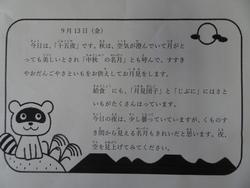 9月13日(金)
今日は、「十五夜」です。秋は、空気が澄んでいて月がと
っても美しいとされ「中秋の名月」とも呼んで、すすき
やおだんごやさといもをお供えしてお月見をします。
給食にも、「月見団子」と「じぶに」にはさと
いもがたくさんはっています。
今日の夜は、少し曇っていていますが、くものす
き間から見える名月もきれいだと思います。夜、
空を見上げてみてください。